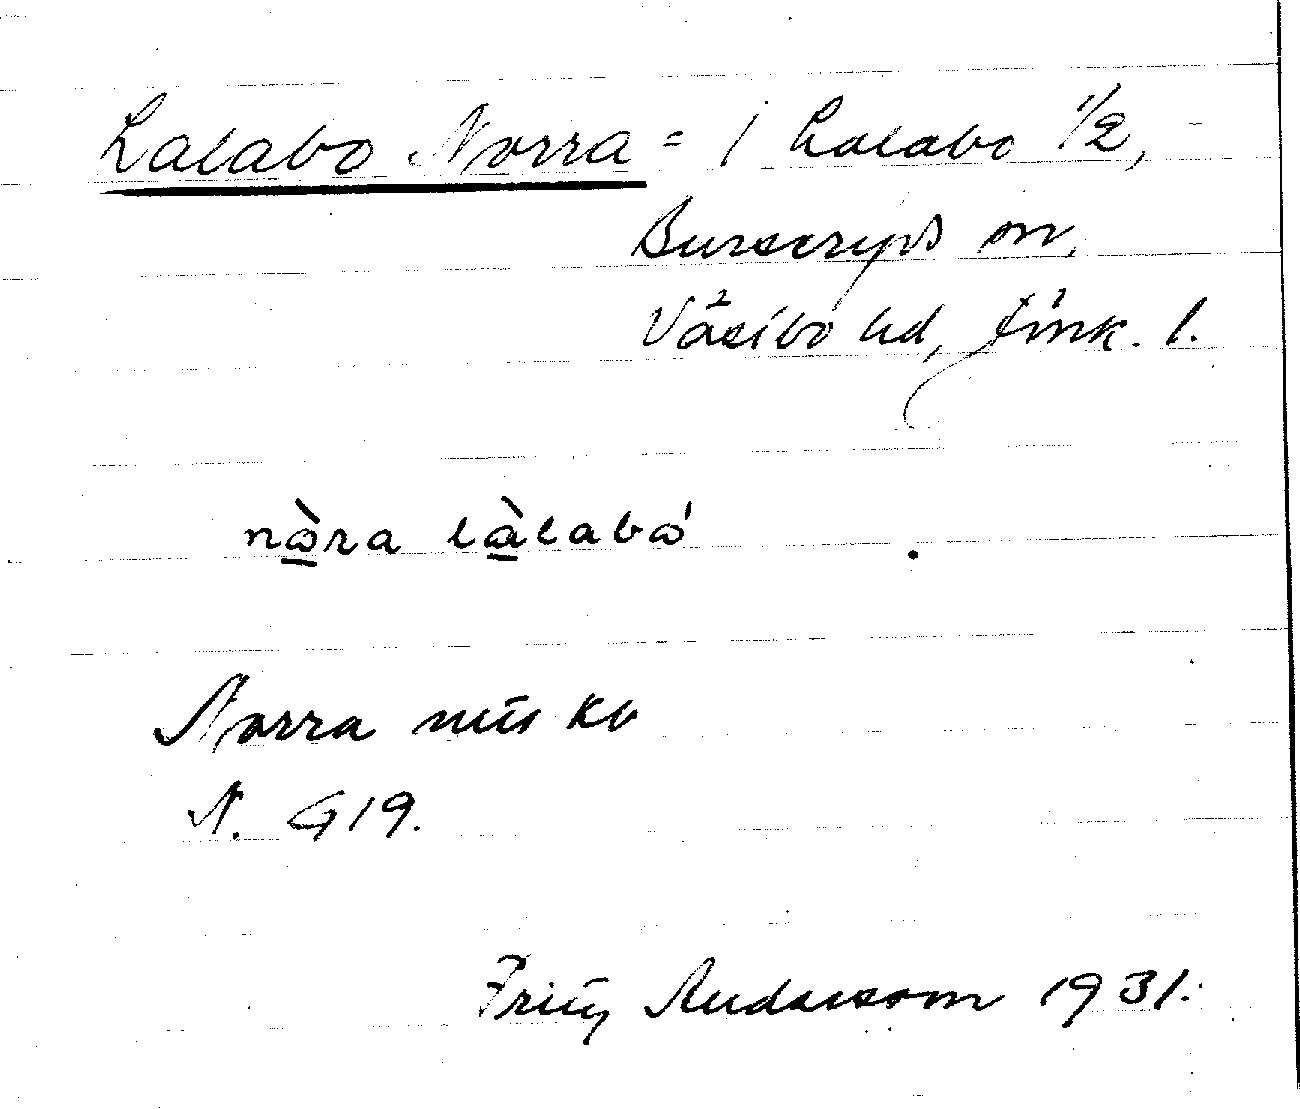 Lalabo Norra = i Lalabo 1/2,
Burseryds sn,
Västbo hd, Jönk. l.
nòra làlabó
Norra
N. G19.
Fritz Andersson 1931.